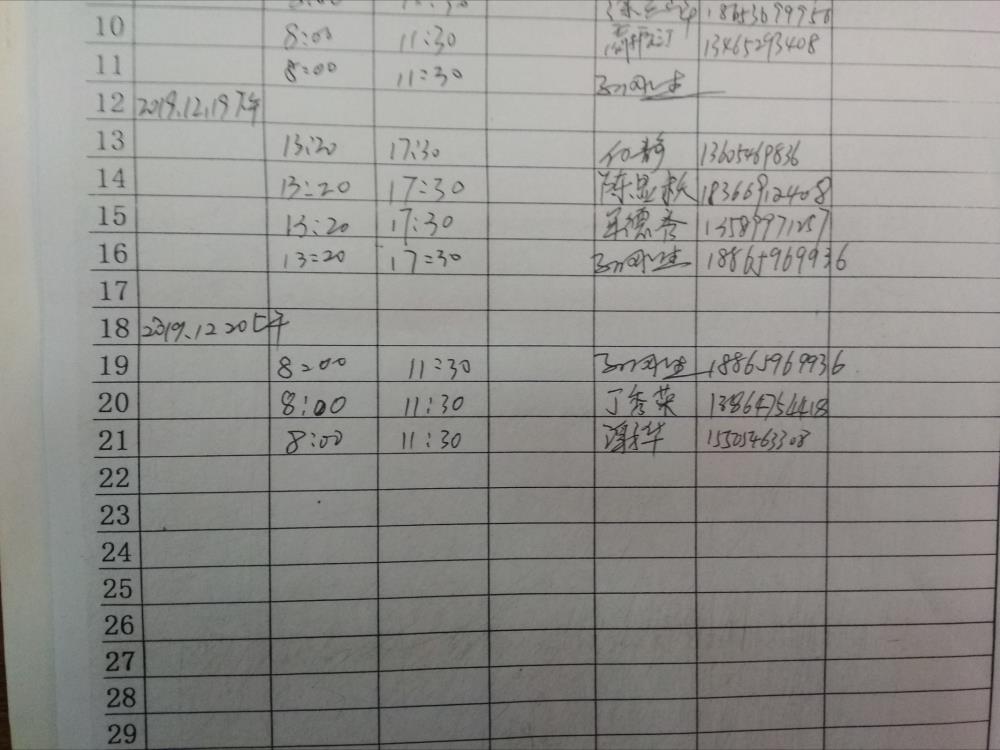 10 8:00 11:30 13465293408
11 8:00 11:30
12 2019.12.19下午
13 13:20 17:30 静 13605469836
14 13:20 17:30 陈显 18366912408
15 13:20 17:30 德香
16 13:20 17:30 18865969936
17
18 2019.12 20上午
19 8:00 11:30 18865969936
20 8:00 11:30 丁秀荣 13864754418
21 8:00 11:30 华 15505463308
22
23
24
25
26
27
28
29